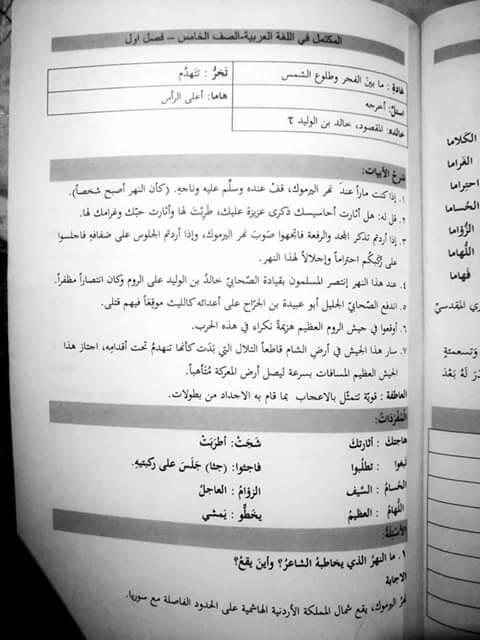 المكتمل في اللغة العربية-الصف الخامس – فصل اول
غادةِ : ما بين الفجر وطلوع الشمس
تَخرُّ : تتهدَّم
استلَّ: أخرجه
هاما: أعلى الرأس
خالده: المقصود، خالد بن الوليد
شرحُ الأبيات:
١. إذا كنت ماراً عند نهر اليرموك، قفْ عنده وسلِّم عليه وناجهِ. (كأن النهر أصبح شخصاً).
٢. قل له: هل أثارت أحاسيسك ذكرى عزيزة عليك، طرِبْتَ لها وأثارت حبّك وغرامك لها.
٣. إذا أردتم تذكر المجد والرفعة فاتجهوا صوبَ نهر اليرموك، وإذا أردتم الجلوس على ضفافهِ فاجلسوا
على رُكَبِكُم احتراماً وإجلالاً لهذا النهر.
٤. عند هذا النهر إنتصر المسلمون بقيادة الصحابيّ خالدُ بن الوليد على الروم وكان انتصاراً مظفراً.
٥. اندفع الصحابيّ الجليل أبو عبيدة بن الجرّاح على أعدائه كالليث موقِعاً فيهم قتلى.
٦. أوقعوا في جيش الروم العظيم هزيمةً نكراء في هذه الحرب.
٧. سار هذا الجيش في أرضِ الشام قاطعاً التلال التي بَدَت كأنها تنهدمُ تحت أقدامِه، اجتاز هذا
الجيش العظيم المسافات بسرعة ليصل أرض المعركة مُتأهباً.
العاطفة : قويّة تتمثّل بالاعجاب بما قام به الاجداد من بطولات.
المُفْرَدَاتُ:
هاجتكَ : أثارتكَ
شَجَتْ: أطرَبَتْ
تَبغوا : تطلُبوا
فاجثوا: (جثا) جَلَسَ على ركبتيهِ.
الحُسامُ : السَّيف
الزؤامُ : العاجلُ
اللُّهامُ : العظيمُ
يخطُو : يَمشي
الأسْئِلَةُ:
١. ما النهرُ الذي يخاطبهُ الشاعرُ؟ وأينَ يقعُ؟
الاجابة
نهرُ اليرموك، يقع شمال المملكة الأردنية الهاشمية على الحدود الفاصلة مع سوريا.
الكَلاما
الغَراما
احتِراما
الحُساما
الزُّؤاما
اللُّهاما
فَهاما